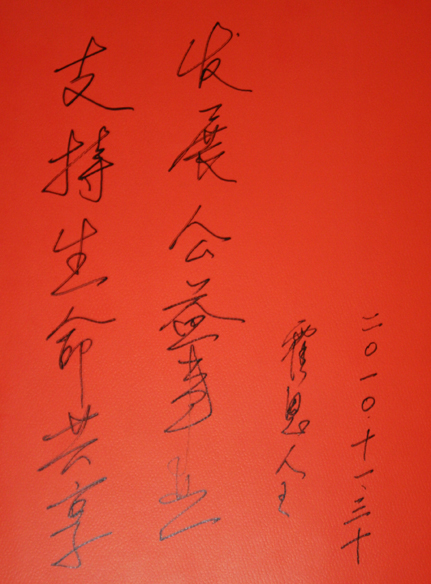 支持生命共享
发展公益事业
霍
二〇一〇·十一·三十